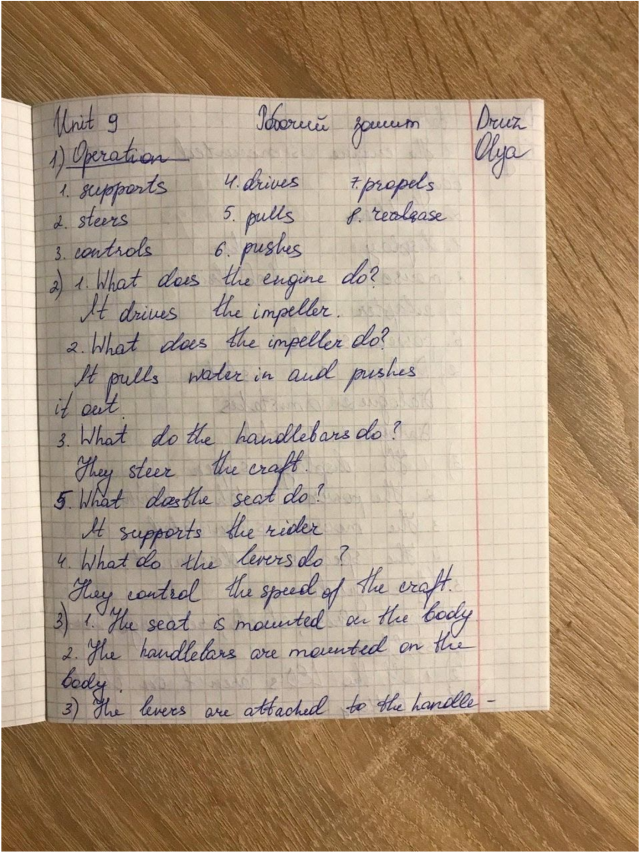 Unit 9 Робочий зошит Druz
1) Operation Olya
1. supports 4. drives 7. propels
2. steers 5. pulls 8.
3. controls 6. pushes
2) 1. What does the engine do?
It drives the impeller.
2. What does the impeller do?
It pulls water in and pushes
it out.
3. What do the handlebars do?
They steer the craft.
5. What does the seat do?
It supports the rider
4. What do the levers do?
They control the speed of the craft.
3) 1. The seat is mounted on the body
2. The handlebars are mounted on the
body.
3) The levers are attached to the handle-